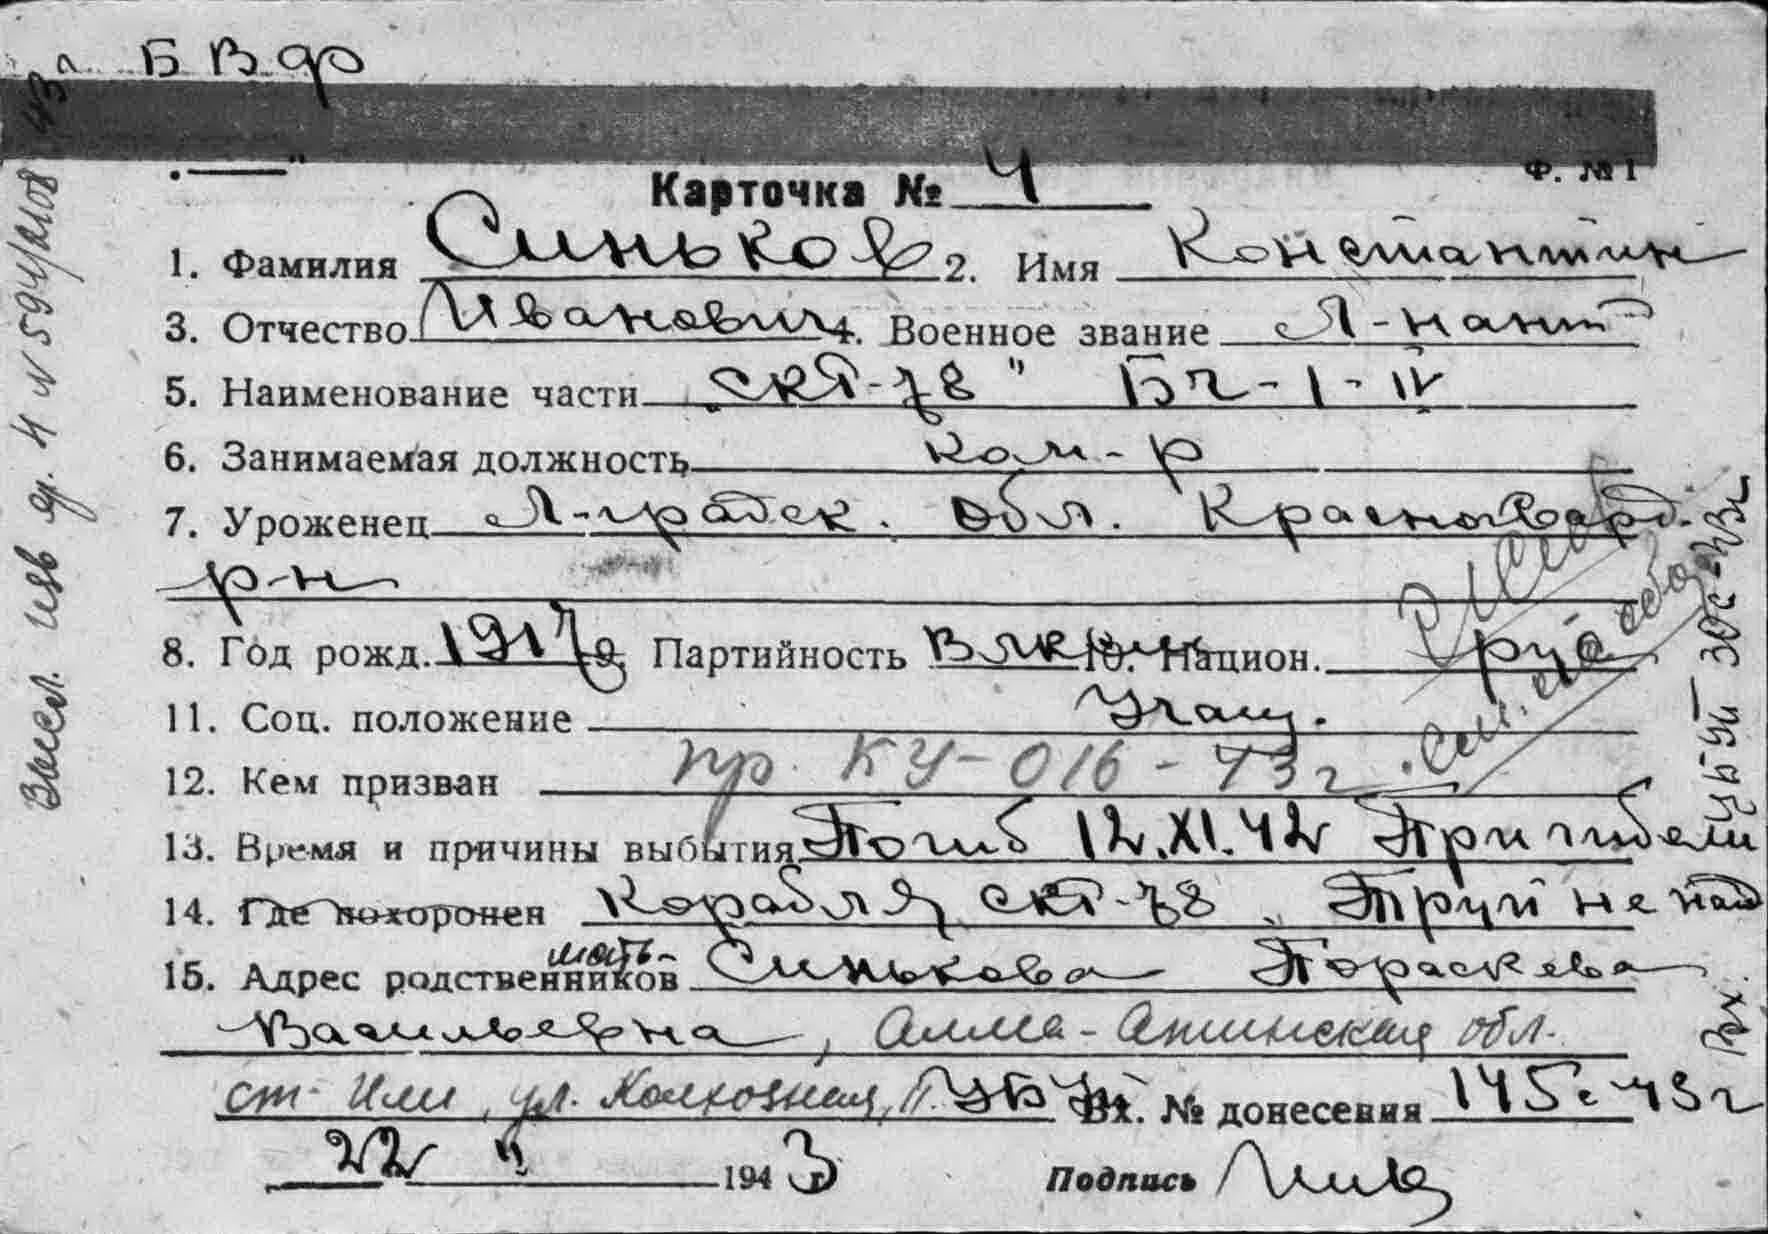 БВф
Ф. № 1
Карточка № 4
1. Фамилия Синьков 2. Имя Константин
3. Отчество Иванович 4. Военное звание Л-нант
5. Наименование части "СКР-78" БЧ-I-IV
6. Занимаемая должность ком-р
7. Уроженец Л-градск. обл. Красногвард.
р-н
8. Год рожд. 1917 г. Партийность ВЛКСМ 10. Национ. рус
11. Соц. положение Учащ.
12. Кем призван пр. КУ-016-43г
13. Время и причины выбытия Погиб 12.XI.42 При гибели
14. Где похоронен Корабля СКР-78. Труп не найд
мать-
15. Адрес родственников Синькова Пораскева
Васильевна, Алма-Атинская обл.
ст. Или, ул. Колхозная, УБУ Вх. № донесения 145с-43г
22 II 1943 Подпись
Высл. изв ф. 4 N